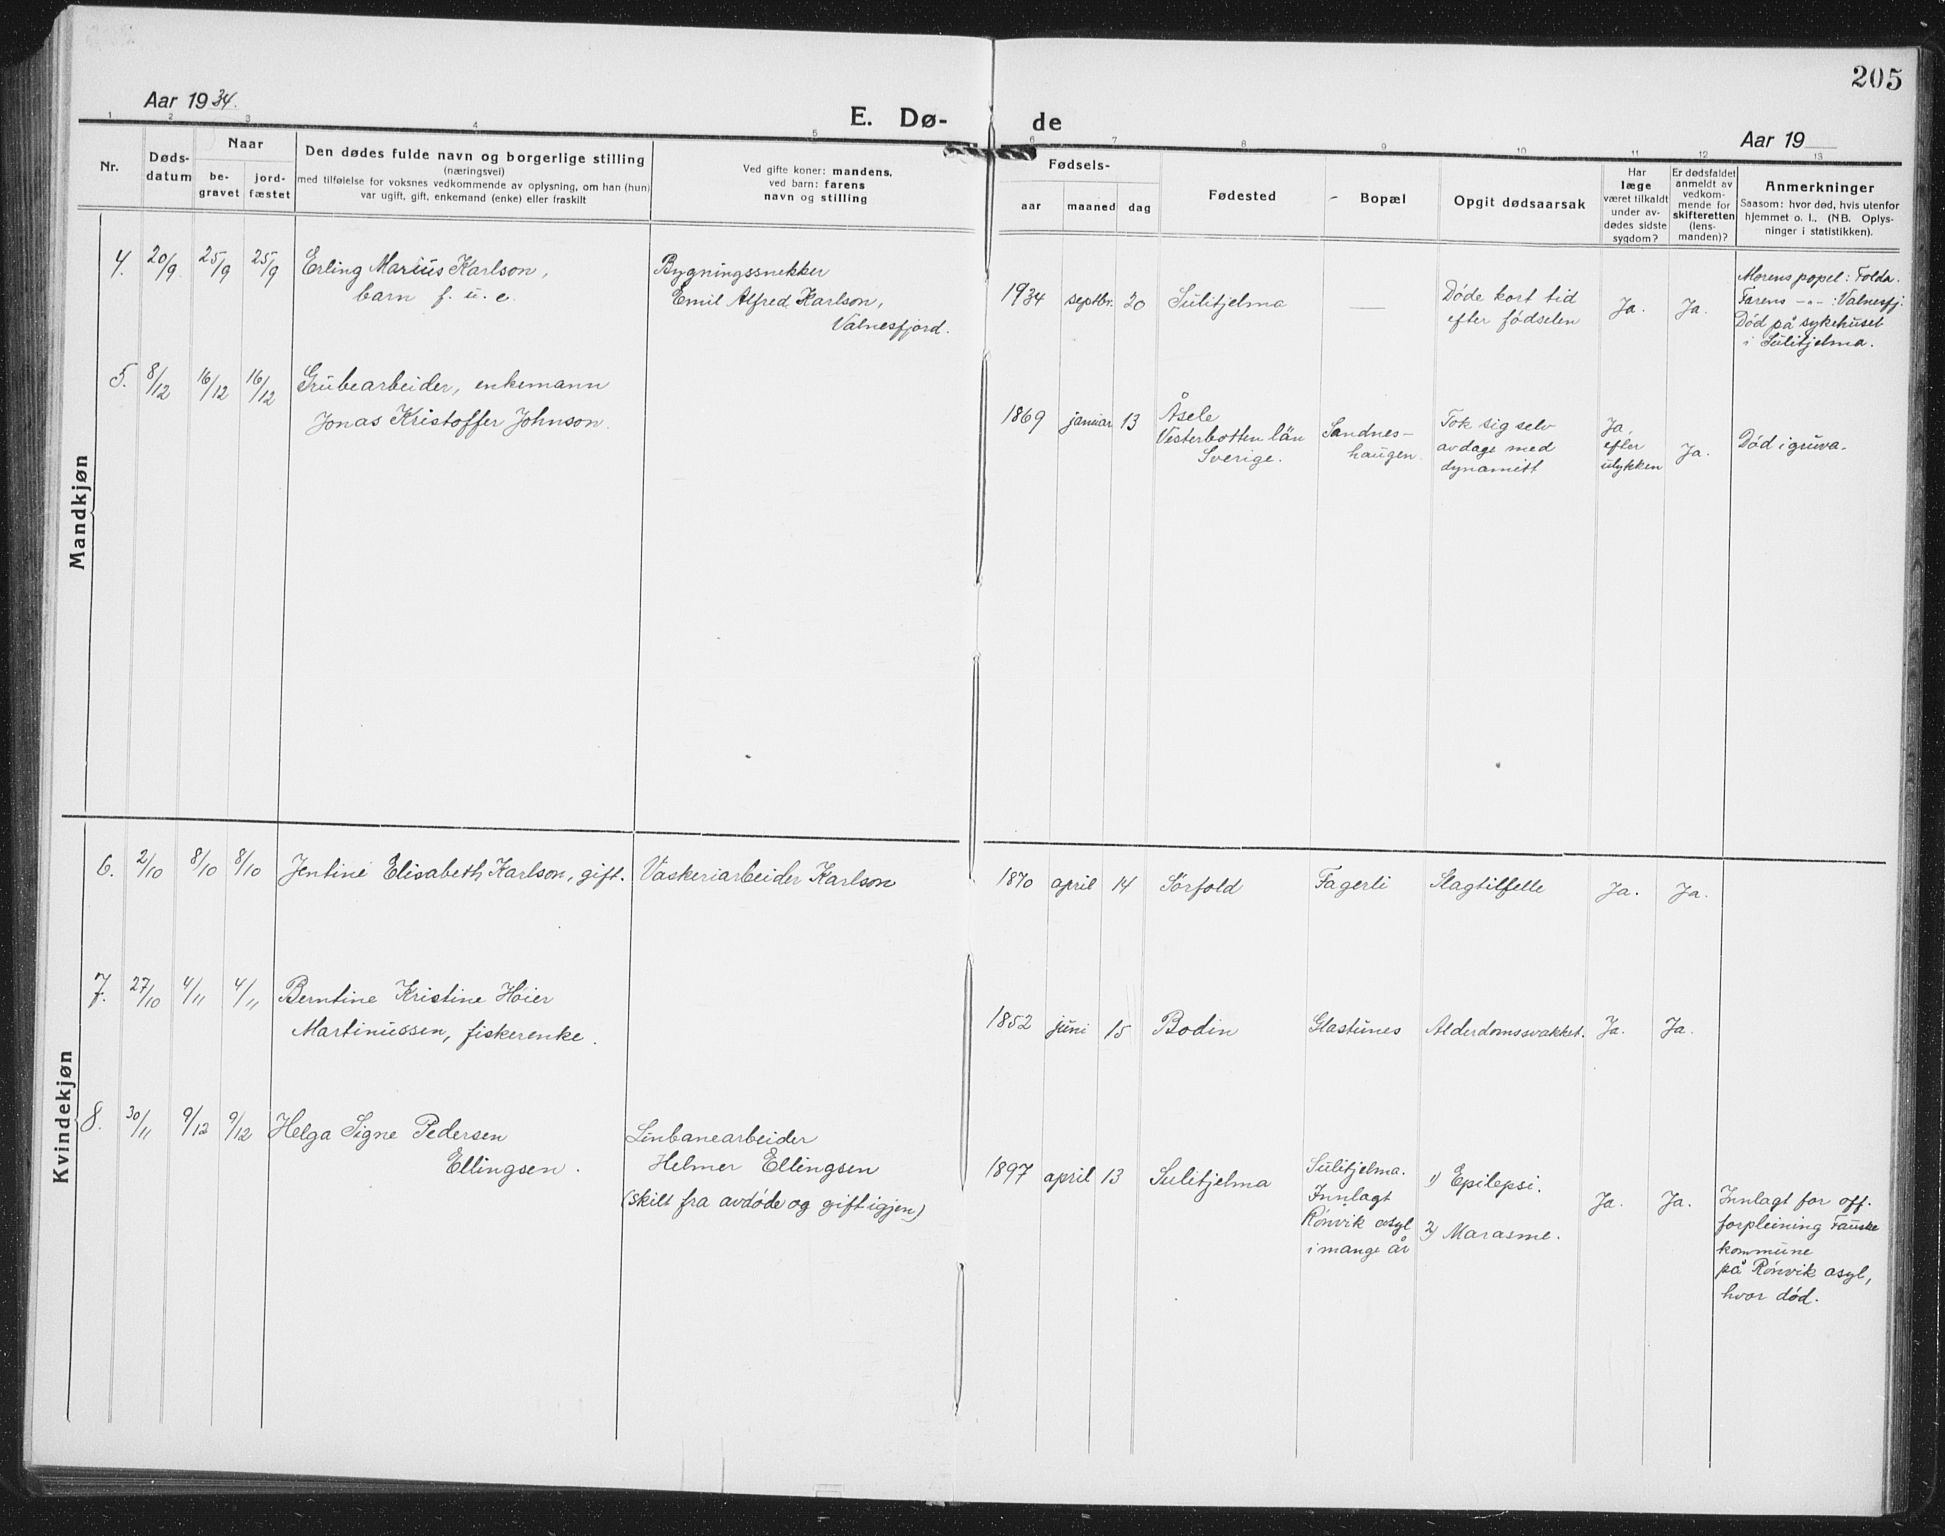 205
Aar 1934.
E. Dø-
de
Aar 19
1 2 3 4 5 6 7 8 9 10 11 12 13
Nr.
Døds-
datum
Naar
be-
gravet
jord-
fæstet
Den dødes fulde navn og borgerlige stilling
(næringsvei)
med tilføielse for voksnes vedkommende av oplysning, om han (hun)
var ugift, gift, enkemand (enke) eller fraskilt
Ved gifte koner: mandens,
ved barn: farens
navn og stilling
Fødsels-
aar
maaned
dag
Fødested
Bopæl
Opgit dødsaarsak
Har
læge
været tilkaldt
under av-
dødes sidste
sygdom?
Er dødsfaldet
anmeldt av
vedkom-
mende for
skifteretten
(lens-
manden)?
Anmerkninger
Saasom: hvor død, hvis utenfor
hjemmet o. l.. (NB. Oplys-
ninger i statistikken).
Mandkjøn
4. 20/9 25/9 25/9
Erling Marius Karlson,
barn f. u. e.
Bygningssnekker
Emil Alfred Karlson,
Valnesfjord.
1934 septbr. 20 Sulitjelma —
Døde kort tid
efter fødselen
Ja. Ja.
Morens popel: Folda.
Farens -"- : Valnesfj.
Død på sykehuset
i Sulitjelma.
5. 8/12 16/12 16/12
Grubearbeider, enkemann
Jonas Kristoffer Johnson.
1869 januar 13
Åsele
Vesterbotten län
Sverige.
Sandnes-
haugen.
Tok sig selv
av dage med
dynamitt
Ja,
efter
ulykken
Ja.
Død i gruva.
Kvindekjøn
6. 2/10 8/10 8/10 Jentine Elisabeth Karlson, gift. Vaskeriarbeider Karlson
1870 april 14 Sørfold Fagerli Slagtilfelle Ja. Ja.
7. 27/10 4/11 4/11 Berntine Kristine Høier
Martinussen, fiskerenke.
1852 juni 15 Bodin Glastunes Alderdomssvakket. Ja. Ja.
8. 30/11 9/12 9/12 Helga Signe Pedersen
Ellingsen.
Linbanearbeider
Helmer Ellingsen
(skilt fra avdøde og gift igjen)
1897 april 13 Sulitjelma
Sulitjelma.
Innlagt
Rønvik asyl
i mange år
1) Epilepsi.
2) Marasme.
Ja. Ja.
Innlagt for off.
forpleining Fauske
kommune
på Rønvik asyl,
hvor død.